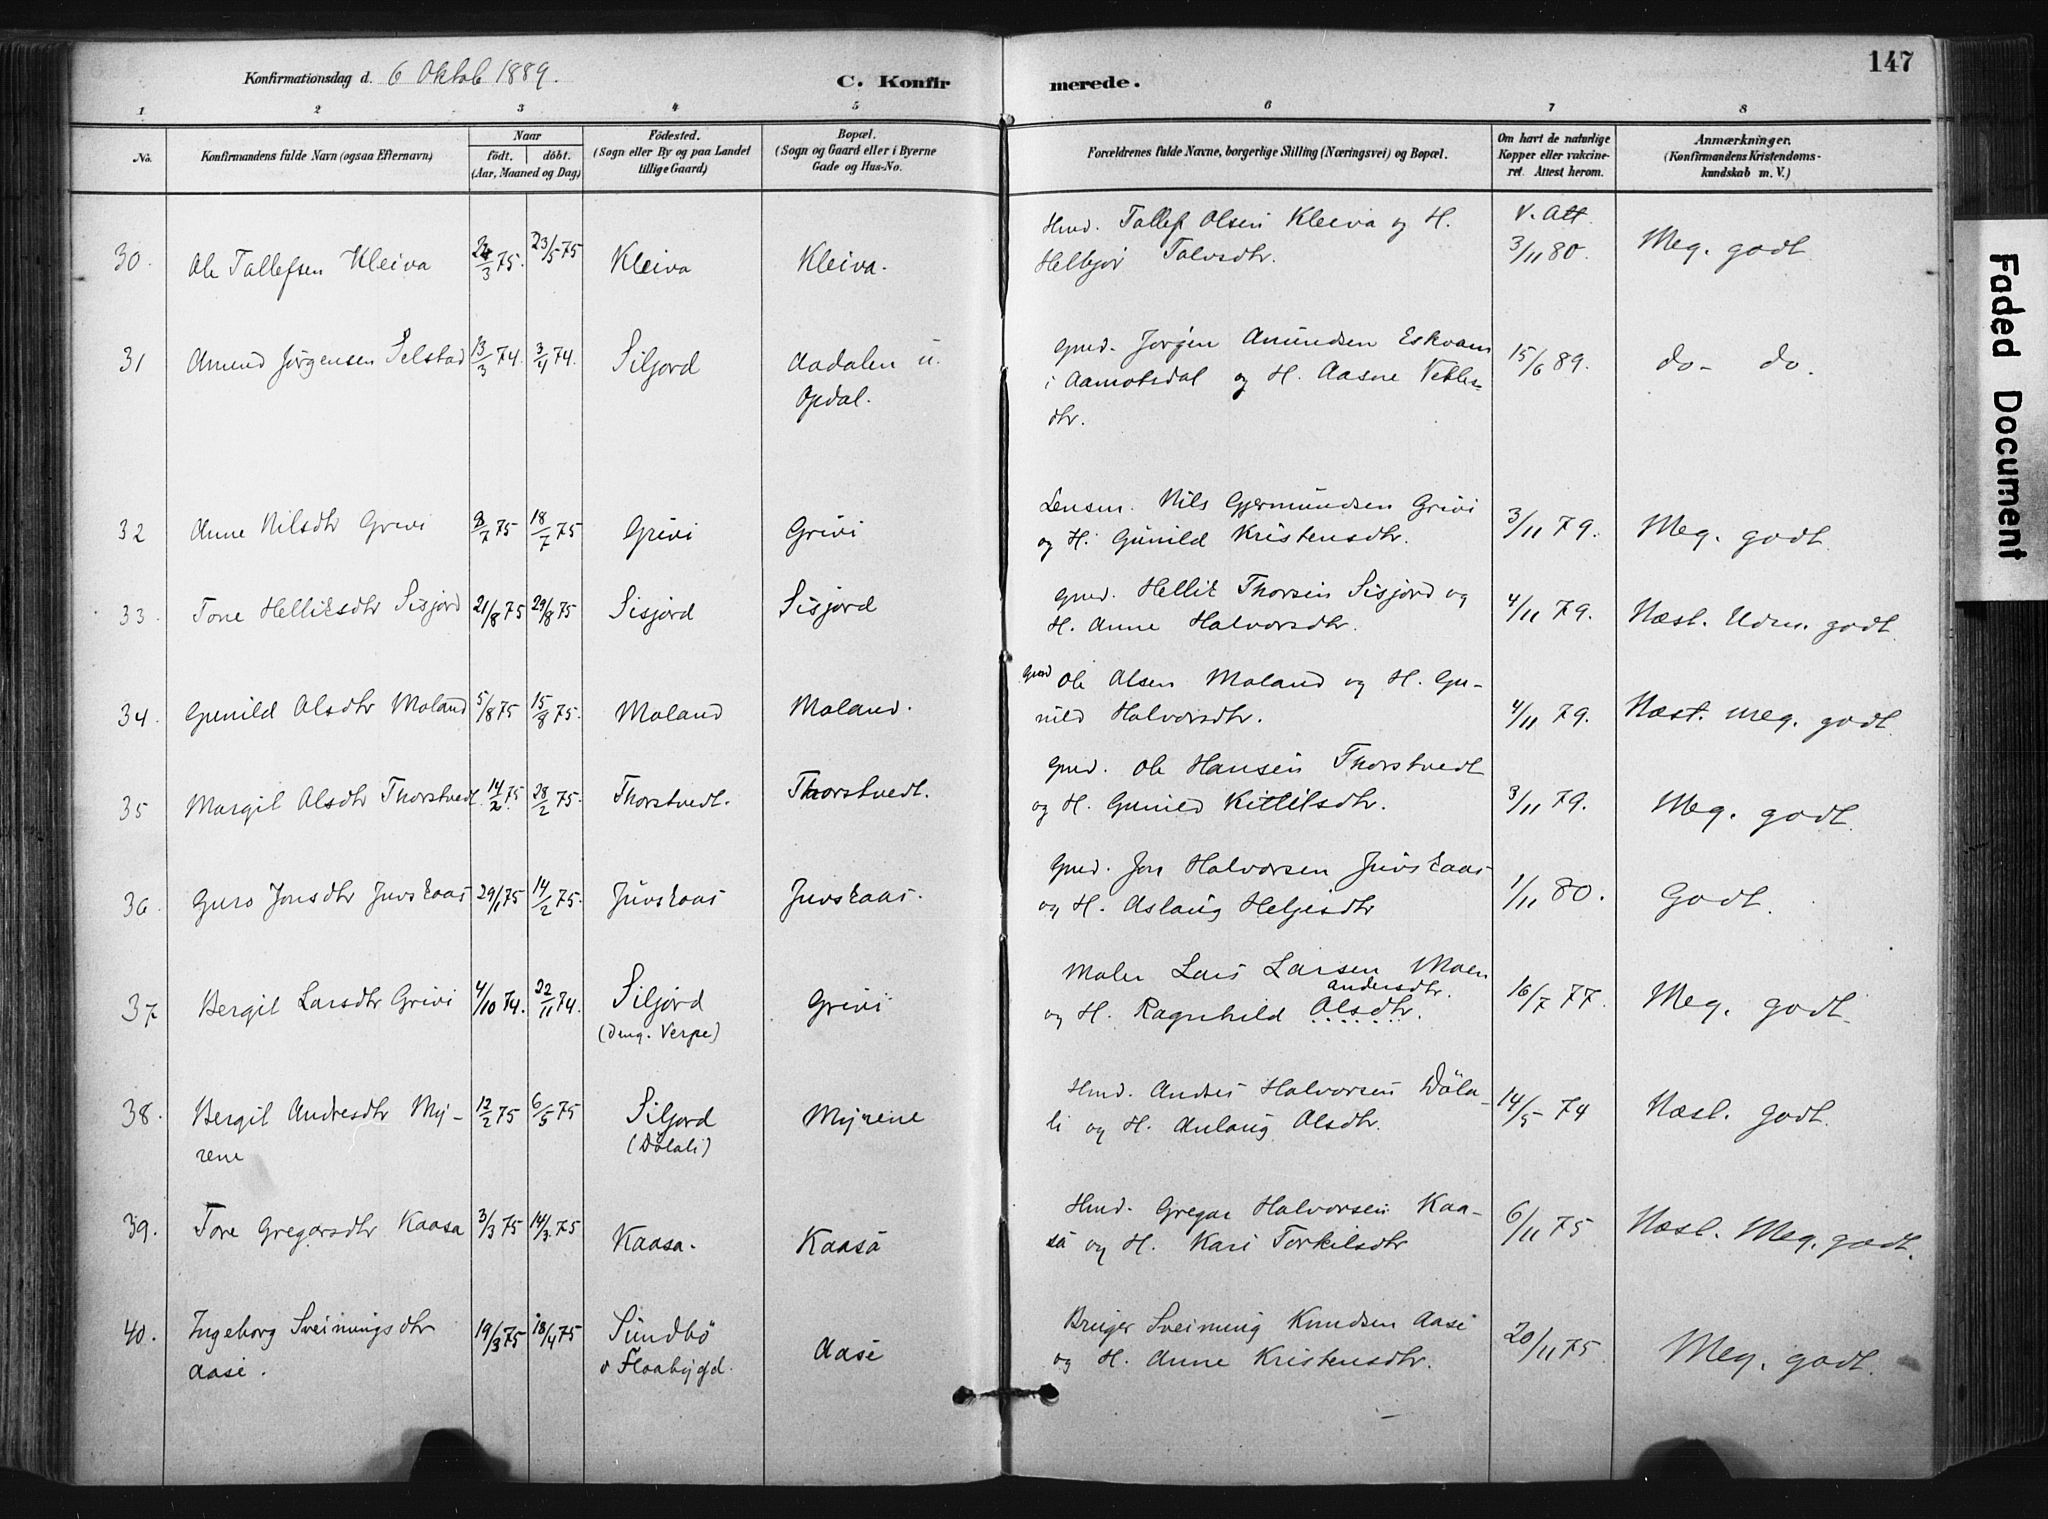 147
Konfirmationsdag d. 6 Oktob 1889.
C. Konfirmerede.
1 2 3 4 5 6 7 8
No.
Konfirmandens fulde Navn (ogsaa Efternavn)
Naar
födt. döbt.
(Aar, Maaned og Dag)
Födested.
(Sogn eller By og paa Landet
tillige Gaard)
Bopæl.
(Sogn og Gaard eller i Byerne
Gade og Hus-No.
Forældrenes fulde Navne, borgerlige Stilling (Næringsvei) og Bopæl.
Om havt de naturlige
Kopper eller vakcine-
ret. Attest herom.
Anmærkninger.
(Konfirmandens Kristendoms-
kundskab m. V.)
30. Ole Tallefsen Kleiva 24/3 75. 23/5 75 Kleiva Kleiva.
Hmd. Tallef Olsen Kleiva og H.
Helbjör Talvsdtr.
V. Att.
3/11 80. Meg. godt
31 Amund Jörgensen Selstad 13/3 74. 3/4 74. Siljord Aadalen u.
Opdal.
Gmd. Jörgen Amundsen Eskvam
i Aamotsdal og H. Aasne Vetles-
dtr.
15/6 89. do - do.
32 Anne Nilsdtr Grivi 9/7 75 18/7 75 Grivi Grivi
Lensm. Nils Gjermundsen Grivi
og H. Gunild Kristensdtr.
3/11 79. Meg. godt.
33. Tone Helliksdtr Sisjord 21/8 75 29/8 75 Sisjord Sisjord
Gmd. Hellik Thorsen Sisjord og
H. Anne Halvorsdtr.
4/11 79. Næst. Udm. godt.
34. Gunild Olsdtr Moland 5/8 75 15/8 75. Moland Moland.
Gmd Ole Olsen Moland og H. Gu-
nild Halvorsdtr.
4/11 79. Næst. meg. godt
35 Margit Olsdtr Thorstvedt. 14/2 75 28/2 75. Thorstvedt. Thorstvedt.
Gmd. Ole Hansen Thorstvedt
og H. Gunild Kittilsdtr.
3/11 79. Meg. godt.
36. Guro Jonsdtr Juvskaas 29/1 75 14/2 75. Juvskaas Juvskaas.
Gmd. Jon Halvorsen Juvskaas
og H. Aslaug Helgesdtr
1/11 80. Godt.
37 Bergit Larsdtr Grivi 4/10 74. 22/11 74. Siljord Grivi
(Dmg. Verpe)
Maler Lars Larsen Moen
Andersdtr.
og H. Ragnhild Olsdtr.
16/7 77. Meg. godt.
38. Bergit Andresdtr My-
rene
12/2 75 6/5 75 Siljord Myrene
(Dölali)
Hmd. Andres Halvorsen Döla-
li og H. Anlaug Olsdtr.
14/5 74 Næst. godt.
39. Tore Gregarsdtr Kaasa 3/3 75 14/3 75 Kaasa. Kaasa
Hmd. Gregar Halvorsen Kaa-
sa og H. Kari Torkilsdtr
6/11 75 Næst. Meg. godt.
40. Ingeborg Sveinungsdtr
Aase.
19/3 75 18/4 75 Sundbö
v Flaabygd.
Aase
Bruger Sveinung Knudsen Aase
og H. Anne Kristensdtr.
20/11 75. Meg. godt.
Faded Document